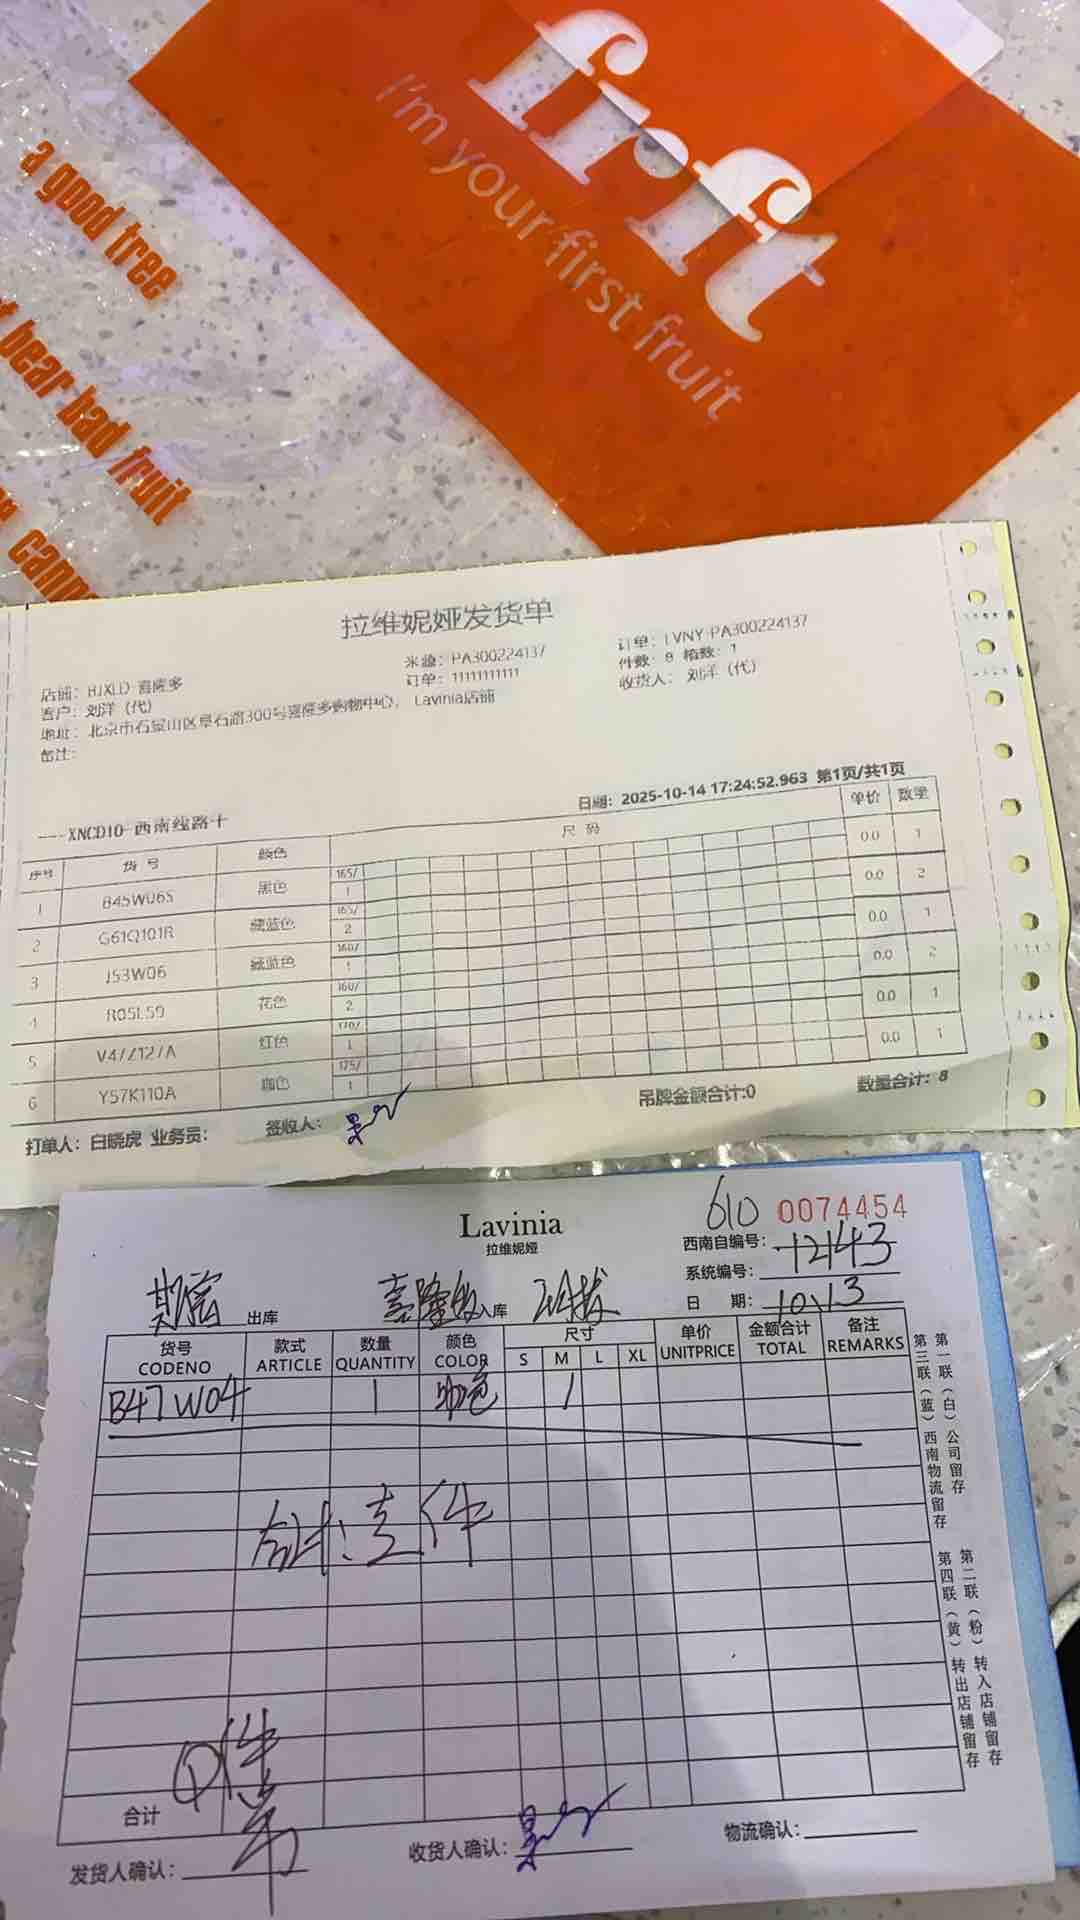 frft
I'm your first fruit
a good tree
bear bad fruit
拉维妮娅发货单
米源：PA300224137
订单：LVNY-PA300224137
店铺：BJXLD-喜隆多
订单：11111111111
件数：8 箱数：1
客户：刘洋（代）
收货人：刘洋（代）
地址：北京市石景山区阜石路300号喜隆多购物中心，Lavinia店铺
备注：
日期：2025-10-14 17:24:52.963 第1页/共1页
----XNCD10-西南线路十
序号 货号 颜色 尺码 单价 数量
1 B45W065 黑色 165/ 1 0.0 1
2 G61Q101R 藏蓝色 165/ 2 0.0 2
3 J53W06 藏蓝色 160/ 1 0.0 1
4 R05L59 花色 160/ 2 0.0 2
5 V47Z127A 红色 170/ 1 0.0 1
6 Y57K110A 咖色 175/ 1 0.0 1
打单人：白晓虎 业务员： 签收人： 吊牌金额合计:0 数量合计：8
Lavinia
拉维妮娅
610 0074454
西南自编号：12143
系统编号：
出库 喜隆多入库
日期：10\13
货号 款式 数量 颜色 尺寸 单价 金额合计 备注
CODENO ARTICLE QUANTITY COLOR S M L XL UNITPRICE TOTAL REMARKS
B47W04 1 咖色 1
合计：壹件
①件
合计
发货人确认： 收货人确认： 物流确认：
第一联（白）公司留存
第二联（粉）转入店铺留存
第三联（蓝）西南物流留存
第四联（黄）转出店铺留存